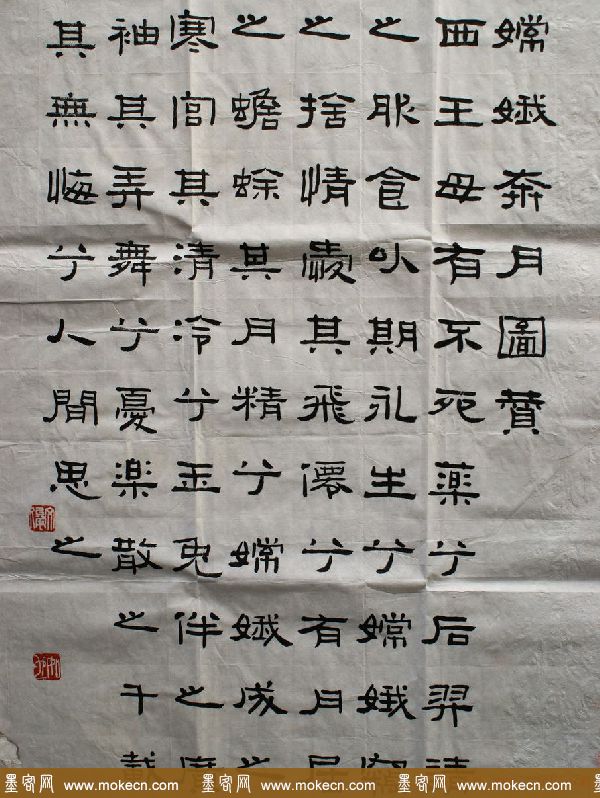 嫦娥奔月圖贊
西王母有不死薬兮后羿
之服食以期永生兮嫦娥
之捨情愛其飛僊兮有月居
之蟾蜍其月精兮嫦娥成之
寒宮其清冷兮玉兔伴之廣
袖其弄舞兮憂楽散之千載
其無悔兮人間思之
墨客网 www.mokecn.com 墨客网 www.mokecn.com 墨客网 www.mokecn.com 墨客网 www.mokecn.com